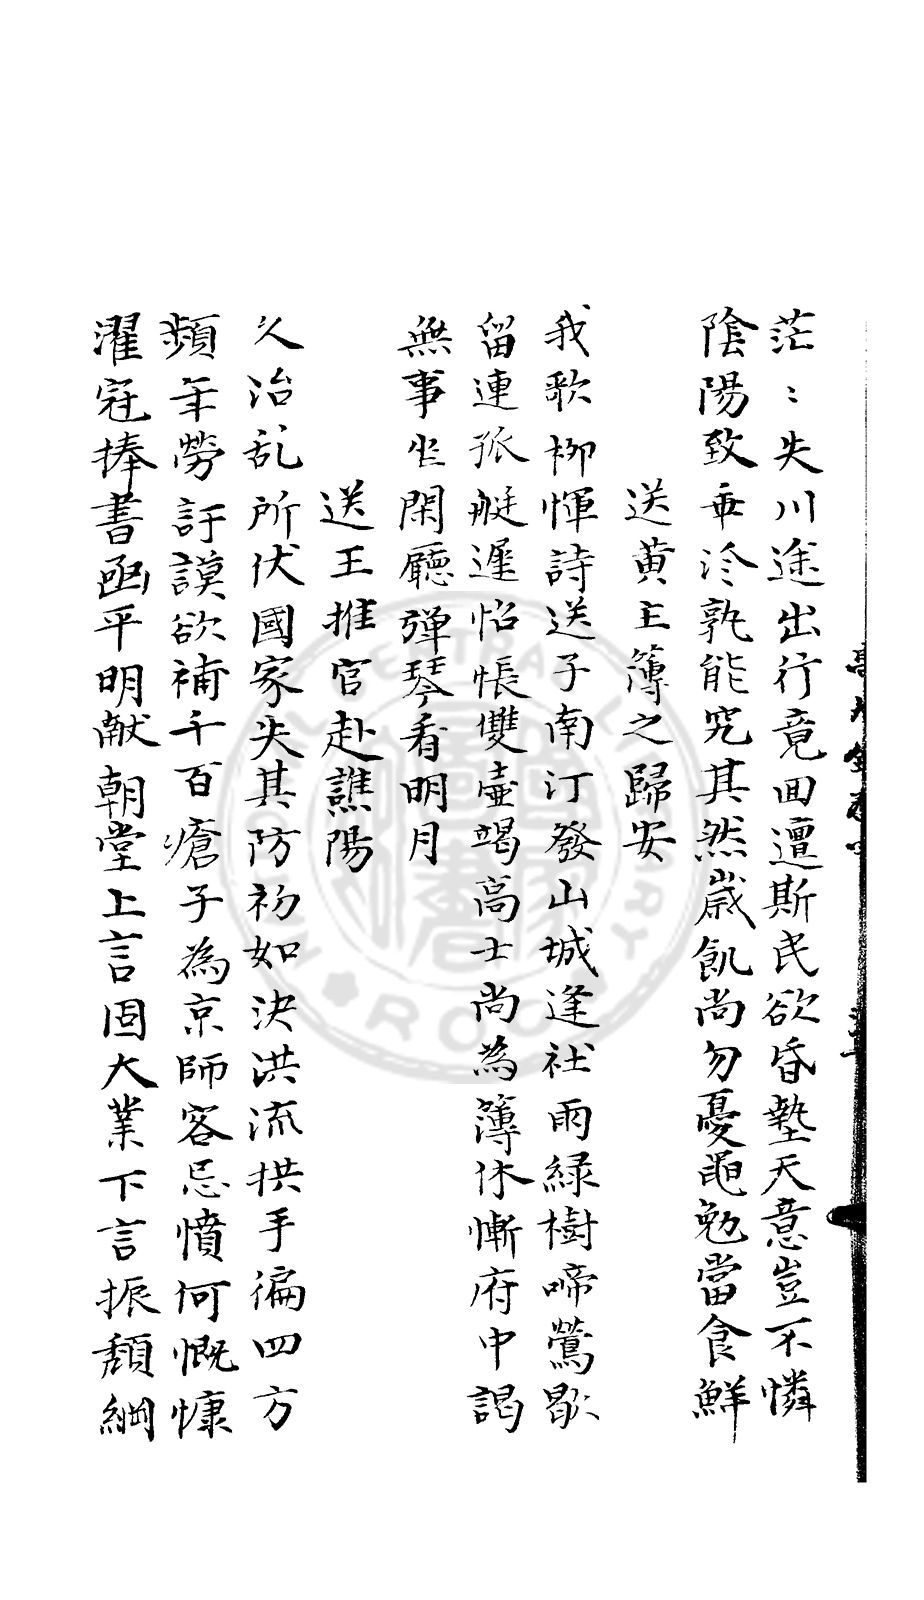 茫〻失川途出行竟囬邅斯民欲昏墊天意豈不憐
陰陽致乖沴孰能究其然歲飢尚勿憂黽勉當食鮮
送黄主簿之歸安
我歌柳惲詩送子南汀發山城逢社雨緑樹啼鶯歇
留連孤艇遲怊悵雙壷竭高士尚為簿休慚府中謁
無事坐閑廳弹琴看明月
送王推官赴譙陽
久治乱所伏國家失其防初如決洪流拱手徧四方
頻年勞訏謨欲補千百瘡子為京師客忌憤何慨慷
濯冠捧書函平明献朝堂上言固大業下言振頽綱
CENTRAL LIBRARY